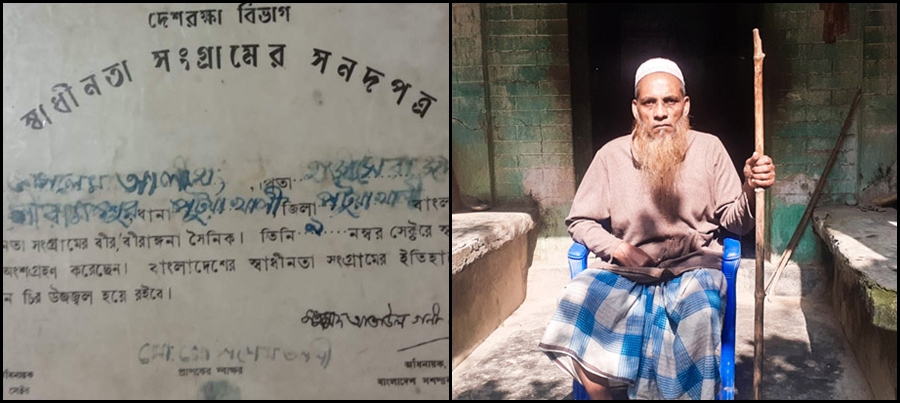 দেশরক্ষা বিভাগ
স্বাধীনতা সংগ্রামের সনদপত্র
আলী
থানা পটুয়াখালী জিলা পটুয়াখালী বাংল
নতা সংগ্রামের বীর/বীরাঙ্গনা সৈনিক। তিনি ৯.... নম্বর সেক্টরে স্ব
অংশগ্রহণ করেছেন। বাংলাদেশের স্বাধীনতা সংগ্রামের ইতিহা
ন চির উজ্জ্বল হয়ে রইবে।
মুহম্মদ আতাউল গনী
প্রাপকের স্বাক্ষর
অধিনায়ক
সেক্টর
অধিনায়ক,
বাংলাদেশ সশস্ত্র